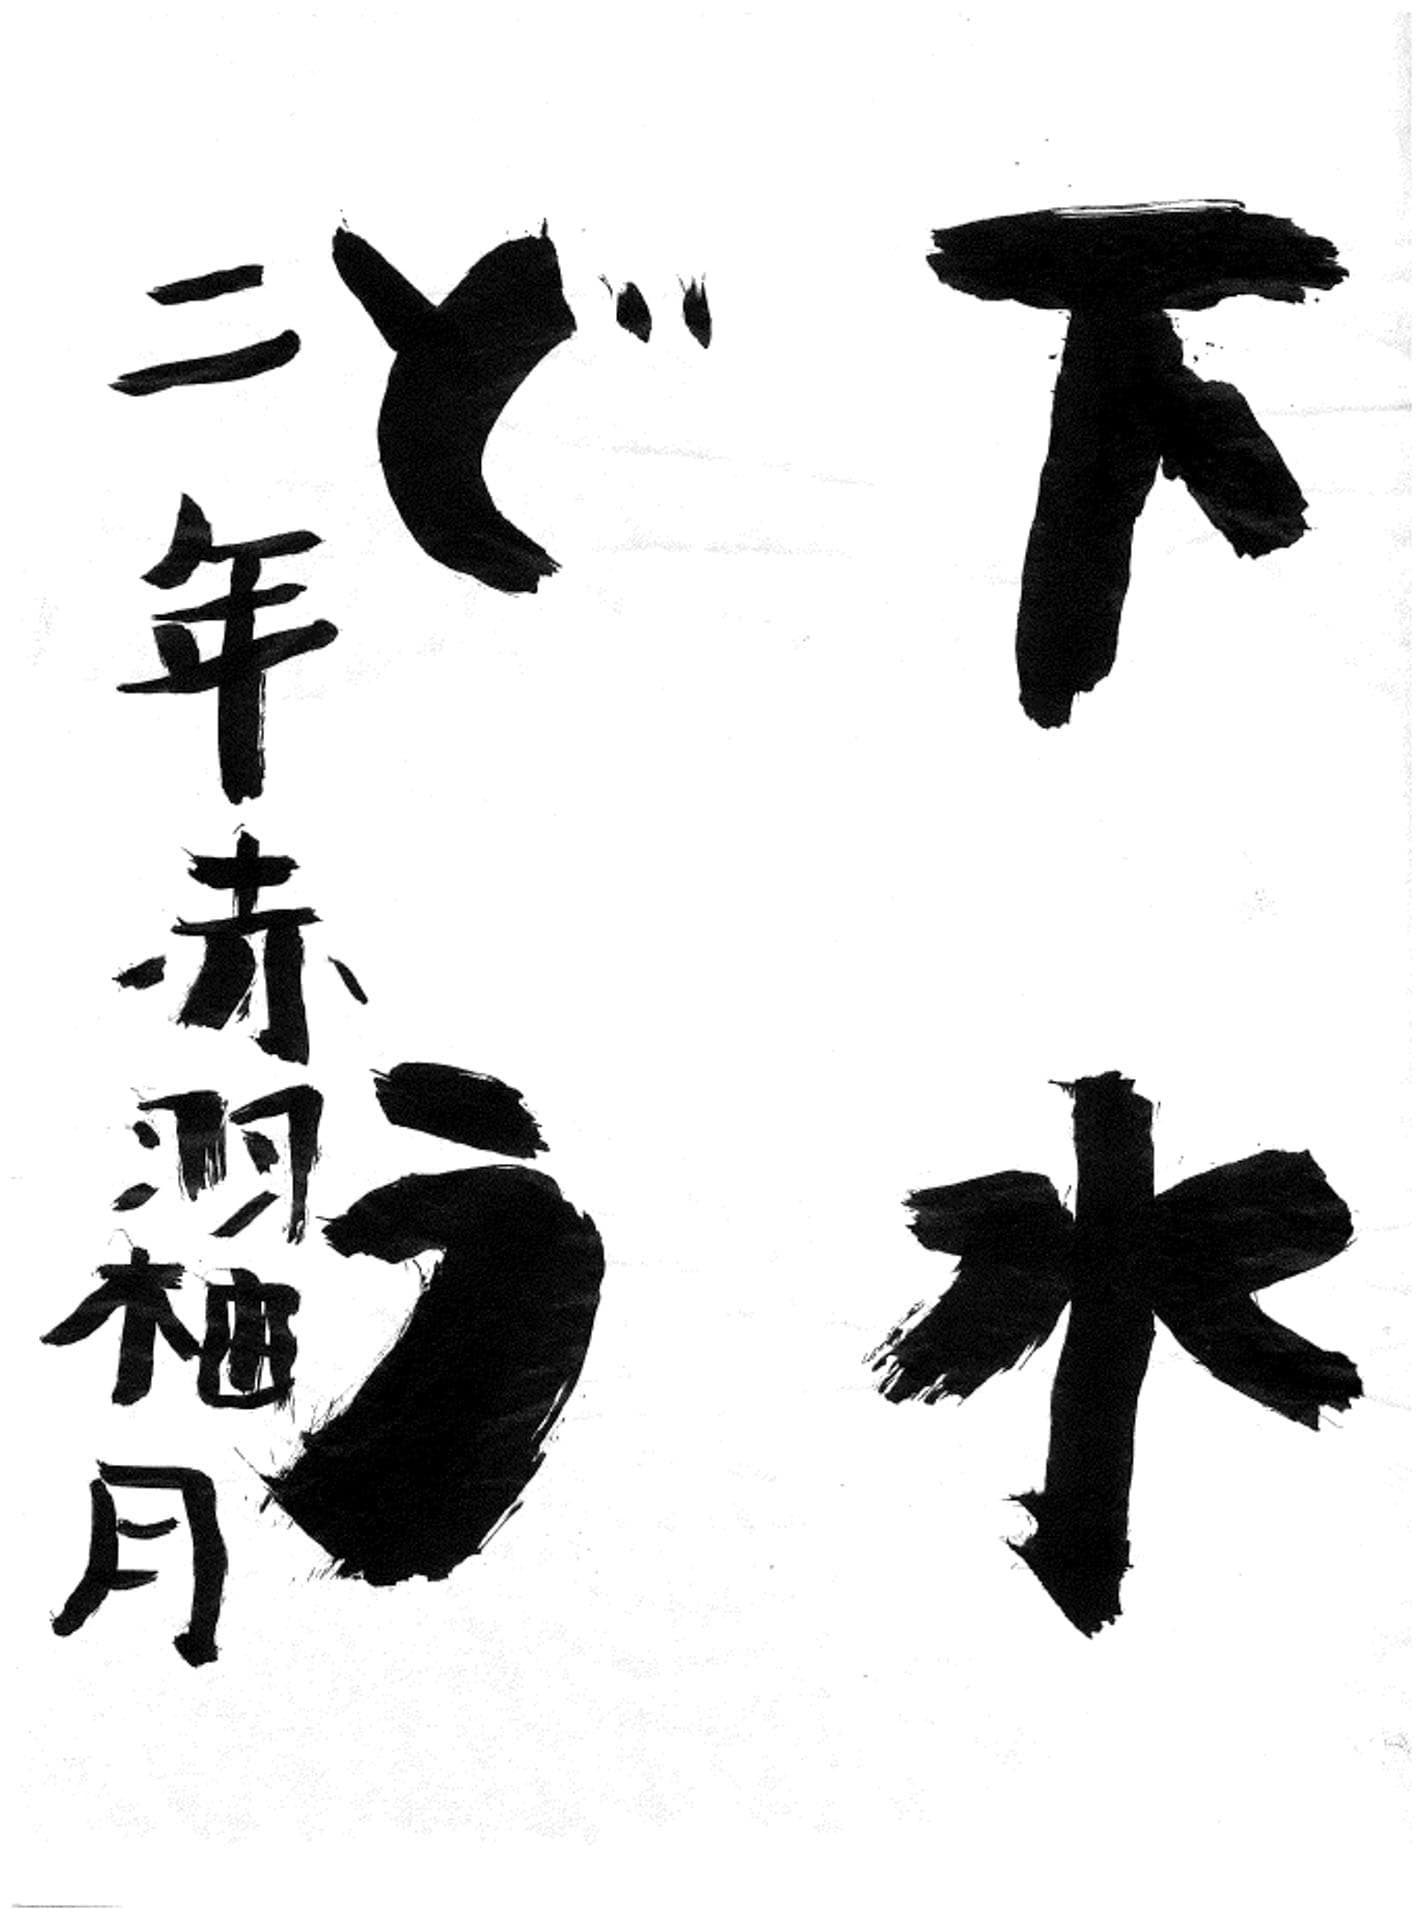 下水
どう
二年赤羽柚月